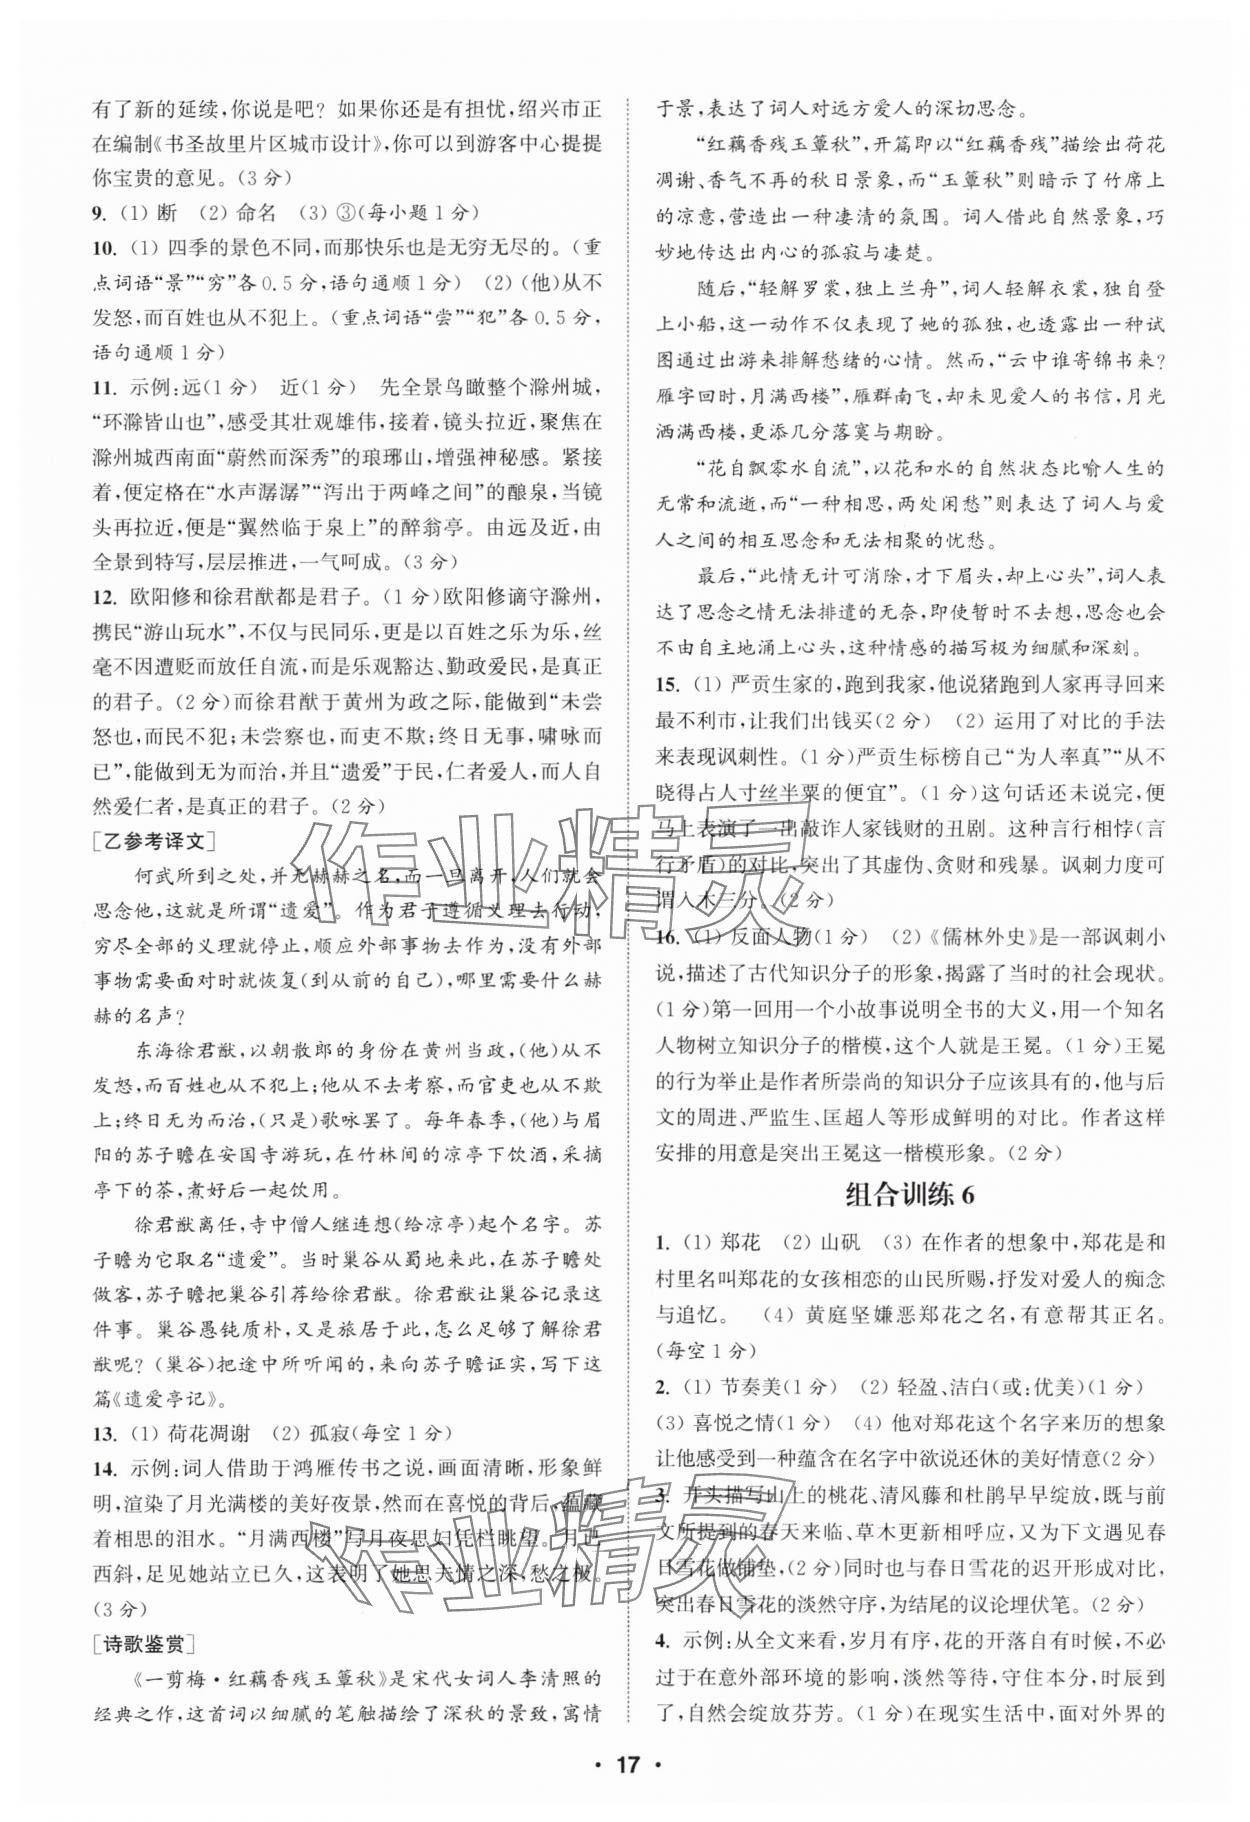 有了新的延续,你说是吧? 如果你还是有担忧,绍兴市正
在编制《书圣故里片区城市设计》,你可以到游客中心提提
你宝贵的意见。(3 分)
9. (1) 断 (2) 命名 (3) ③(每小题 1 分)
10. (1) 四季的景色不同,而那快乐也是无穷无尽的。(重
点词语“景”“穷”各 0.5 分,语句通顺 1 分) (2) (他)从不
发怒,而百姓也从不犯上。(重点词语“尝”“犯”各 0.5 分,
语句通顺 1 分)
11. 示例:远(1 分) 近(1 分) 先全景鸟瞰整个滁州城,
“环滁皆山也”,感受其壮观雄伟,接着,镜头拉近,聚焦在
滁州城西南面“蔚然而深秀”的琅琊山,增强神秘感。紧接
着,便定格在“水声潺潺”“泻出于两峰之间”的酿泉,当镜
头再拉近,便是“翼然临于泉上”的醉翁亭。由远及近,由
全景到特写,层层推进,一气呵成。(3 分)
12. 欧阳修和徐君猷都是君子。(1 分)欧阳修谪守滁州,
携民“游山玩水”,不仅与民同乐,更是以百姓之乐为乐,丝
毫不因遭贬而放任自流,而是乐观豁达、勤政爱民,是真正
的君子。(2 分)而徐君猷于黄州为政之际,能做到“未尝
怒也,而民不犯;未尝察也,而吏不欺;终日无事,啸咏而
已”,能做到无为而治,并且“遗爱”于民,仁者爱人,而人自
然爱仁者,是真正的君子。(2 分)
[乙参考译文]
何武所到之处,并无赫赫之名,而一旦离开,人们就会
思念他,这就是所谓“遗爱”。作为君子遵循义理去行动,
穷尽全部的义理就停止,顺应外部事物去作为,没有外部
事物需要面对时就恢复(到从前的自己),哪里需要什么赫
赫的名声?
东海徐君猷,以朝散郎的身份在黄州当政,(他)从不
发怒,而百姓也从不犯上;他从不去考察,而官吏也从不欺
上;终日无为而治,(只是)歌咏罢了。每年春季,(他)与眉
阳的苏子瞻在安国寺游玩,在竹林间的凉亭下饮酒,采摘
亭下的茶,煮好后一起饮用。
徐君猷离任,寺中僧人继连想(给凉亭)起个名字。苏
子瞻为它取名“遗爱”。当时巢谷从蜀地来,在苏子瞻处
做客。苏子瞻把巢谷引荐给徐君猷。徐君猷让巢谷记录这
件事。巢谷愚钝质朴,又是旅居于此,怎么足够了解徐君
猷呢? (巢谷)把途中所听闻的,来向苏子瞻证实,写下这
篇《遗爱亭记》。
13. (1) 荷花凋谢 (2) 孤寂(每空 1 分)
14. 示例:词人借助于鸿雁传书之说,画面清晰,形象鲜
明,渲染了月光满楼的美好夜景,然而在喜悦的背后,蕴藏
着相思的泪水。“月满西楼”写月夜思妇凭栏眺望。月已
西斜,足见她站立已久,这表明了她思夫情之深,愁之极。
(3 分)
[诗歌鉴赏]
《一剪梅·红藕香残玉簟秋》是宋代女词人李清照的
经典之作,这首词以细腻的笔触描绘了深秋的景致,寓情
于景,表达了词人对远方爱人的深切思念。
“红藕香残玉簟秋”,开篇即以“红藕香残”描绘出荷花
凋谢、香气不再的秋日景象,而“玉簟秋”则暗示了竹席上
的凉意,营造出一种凄清的氛围。词人借此自然景象,巧
妙地传达出内心的孤寂与凄楚。
随后,“轻解罗裳,独上兰舟”,词人轻解衣裳,独自登
上小船,这一动作不仅表现了她的孤独,也透露出一种试
图通过出游来排解愁绪的心情。然而,“云中谁寄锦书来?
雁字回时,月满西楼”,雁群南飞,却未见爱人的书信,月光
洒满西楼,更添几分落寞与期盼。
“花自飘零水自流”,以花和水的自然状态比喻人生的
无常和流逝,而“一种相思,两处闲愁”则表达了词人与爱
人之间的相互思念和无法相聚的忧愁。
最后,“此情无计可消除,才下眉头,却上心头”,词人表
达了思念之情无法排遣的无奈,即使暂时不去想,思念也会
不由自主地涌上心头,这种情感的描写极为细腻和深刻。
15. (1) 严贡生家的,跑到我家,他说猪跑到人家再寻回来
最不利市,让我们出钱买(2 分) (2) 运用了对比的手法
来表现讽刺性。(1 分)严贡生标榜自己“为人率真”“从不
晓得占人寸丝半粟的便宜”。(1 分)这句话还未说完,便
马上表演了一出敲诈人家钱财的丑剧。这种言行相悖(言
行矛盾)的对比,突出了其虚伪、贪财和残暴。讽刺力度可
谓入木三分。(2 分)
16. (1) 反面人物(1 分) (2)《儒林外史》是一部讽刺小
说,描述了古代知识分子的形象,揭露了当时的社会现状。
(1 分)第一回用一个小故事说明全书的大义,用一个知名
人物树立知识分子的楷模,这个人就是王冕。(1 分)王冕
的行为举止是作者所崇尚的知识分子应该具有的,他与后
文的周进、严监生、匡超人等形成鲜明的对比。作者这样
安排的用意是突出王冕这一楷模形象。(2 分)
组合训练 6
1. (1) 郑花 (2) 山矾 (3) 在作者的想象中,郑花是和
村里名叫郑花的女孩相恋的山民所赐,抒发对爱人的痴念
与追忆。 (4) 黄庭坚嫌恶郑花之名,有意帮其正名。
(每空 1 分)
2. (1) 节奏美(1 分) (2) 轻盈、洁白(或:优美)(1 分)
(3) 喜悦之情(1 分) (4) 他对郑花这个名字来历的想象
让他感受到一种蕴含在名字中欲说还休的美好情意(2 分)
3. 开头描写山上的桃花、清风藤和杜鹃早早绽放,既与前
文所提到的春天来临、草木更新相呼应,又为下文遇见春
日雪花做铺垫,(2 分)同时也与春日雪花的迟开形成对比,
突出春日雪花的淡然守序,为结尾的议论埋伏笔。(2 分)
4. 示例:从全文来看,岁月有序,花的开落自有时候,不必
过于在意外部环境的影响,淡然等待,守住本分,时辰到
了,自然会绽放芬芳。(1 分)在现实生活中,面对外界的
· 17 ·
作业精灵
作业精灵